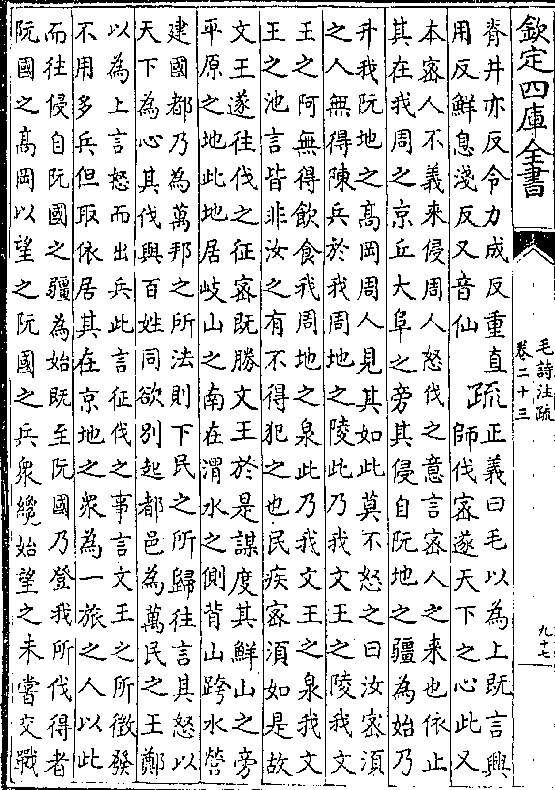 欽定四庫全書
毛詩注疏
卷二十三
脊井亦反令力成反重直
用反鮮息淺反又音仙
疏
正義曰毛以為上既言興
師伐密遂天下之心此又
本密人不義來侵周人怒伐之意言密人之來也依止
其在我周之京丘大阜之旁其侵自阮地之疆為始乃
升我阮地之髙岡周人見其如此莫不怒之曰汝密湏
之人無得陳兵於我周地之陵此乃我文王之陵我文
王之阿無得飲食我周地之泉此乃我文王之泉我文
王之池言皆非汝之有不得犯之也民疾密湏如是故
文王遂往伐之征密既勝文王於是謀度其鮮山之旁
平原之地此地居岐山之南在渭水之側背山跨水營
建國都乃為萬邦之所法則下民之所歸往言其怒以
天下為心其伐與百姓同欲别起都邑為萬民之王鄭
以為上言怒而出兵此言征伐之事言文王之所徴發
不用多兵但取依居其在京地之衆為一旅之人以此
而往侵自阮國之疆為始既至阮國乃登我所伐得者
阮國之髙岡以望之阮國之兵衆纔始望之未嘗交戰